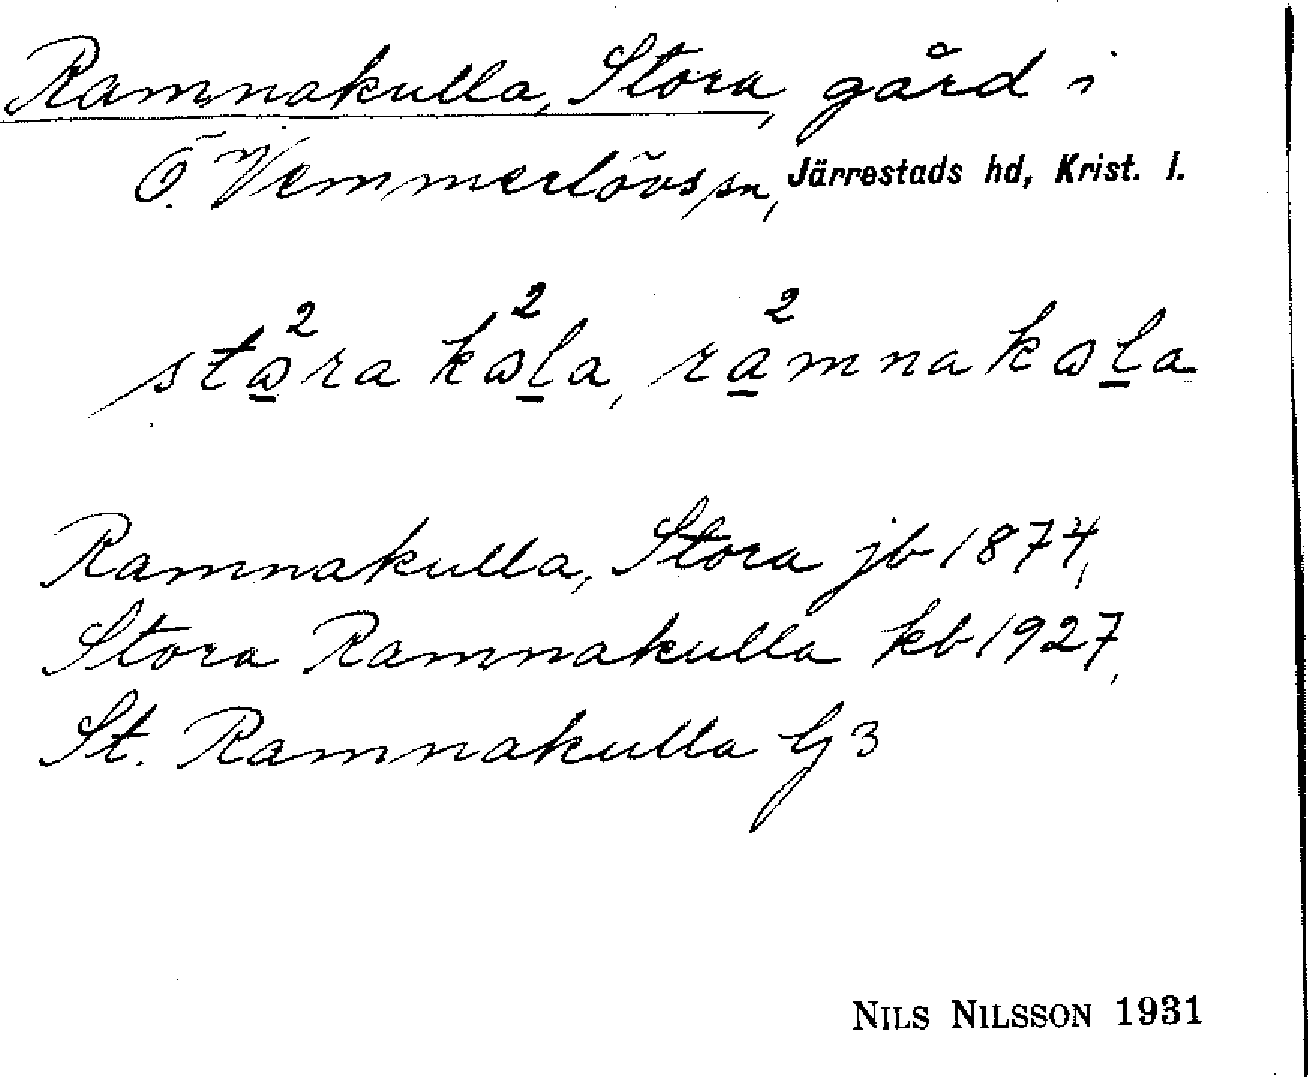 Ramnakulla, Stora, gård i
Ö. Vemmerlövs sn, Järrestads hd, Krist. l.
Ramnakulla, Stora jb 1874,
Stora Ramnakulla kb 1927,
St. Ramnakulla G 3
NILS NILSSON 1931